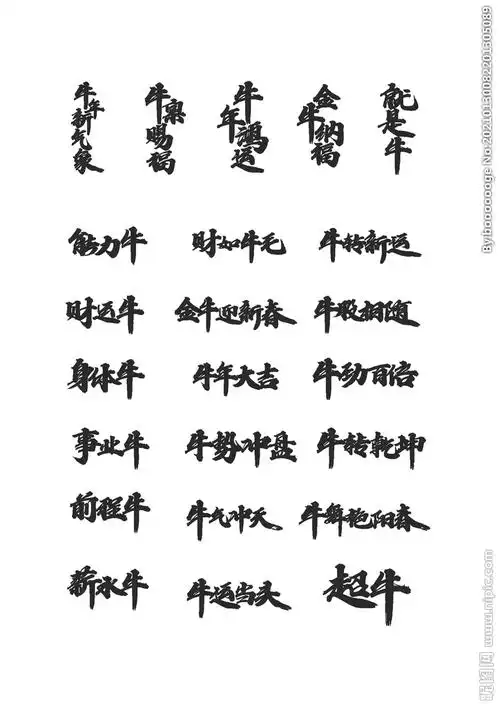 牛年新气象
牛赐福
牛年鸿运
金牛纳福
就是牛
能力牛
财如牛毛
牛转新运
财运牛
金牛迎新春
牛股相随
身体牛
牛年大吉
牛劲百倍
事业牛
牛势冲盘
牛转乾坤
前程牛
牛气冲天
牛舞艳阳春
薪水牛
牛运当头
超牛
昵图网 www.nipic.com